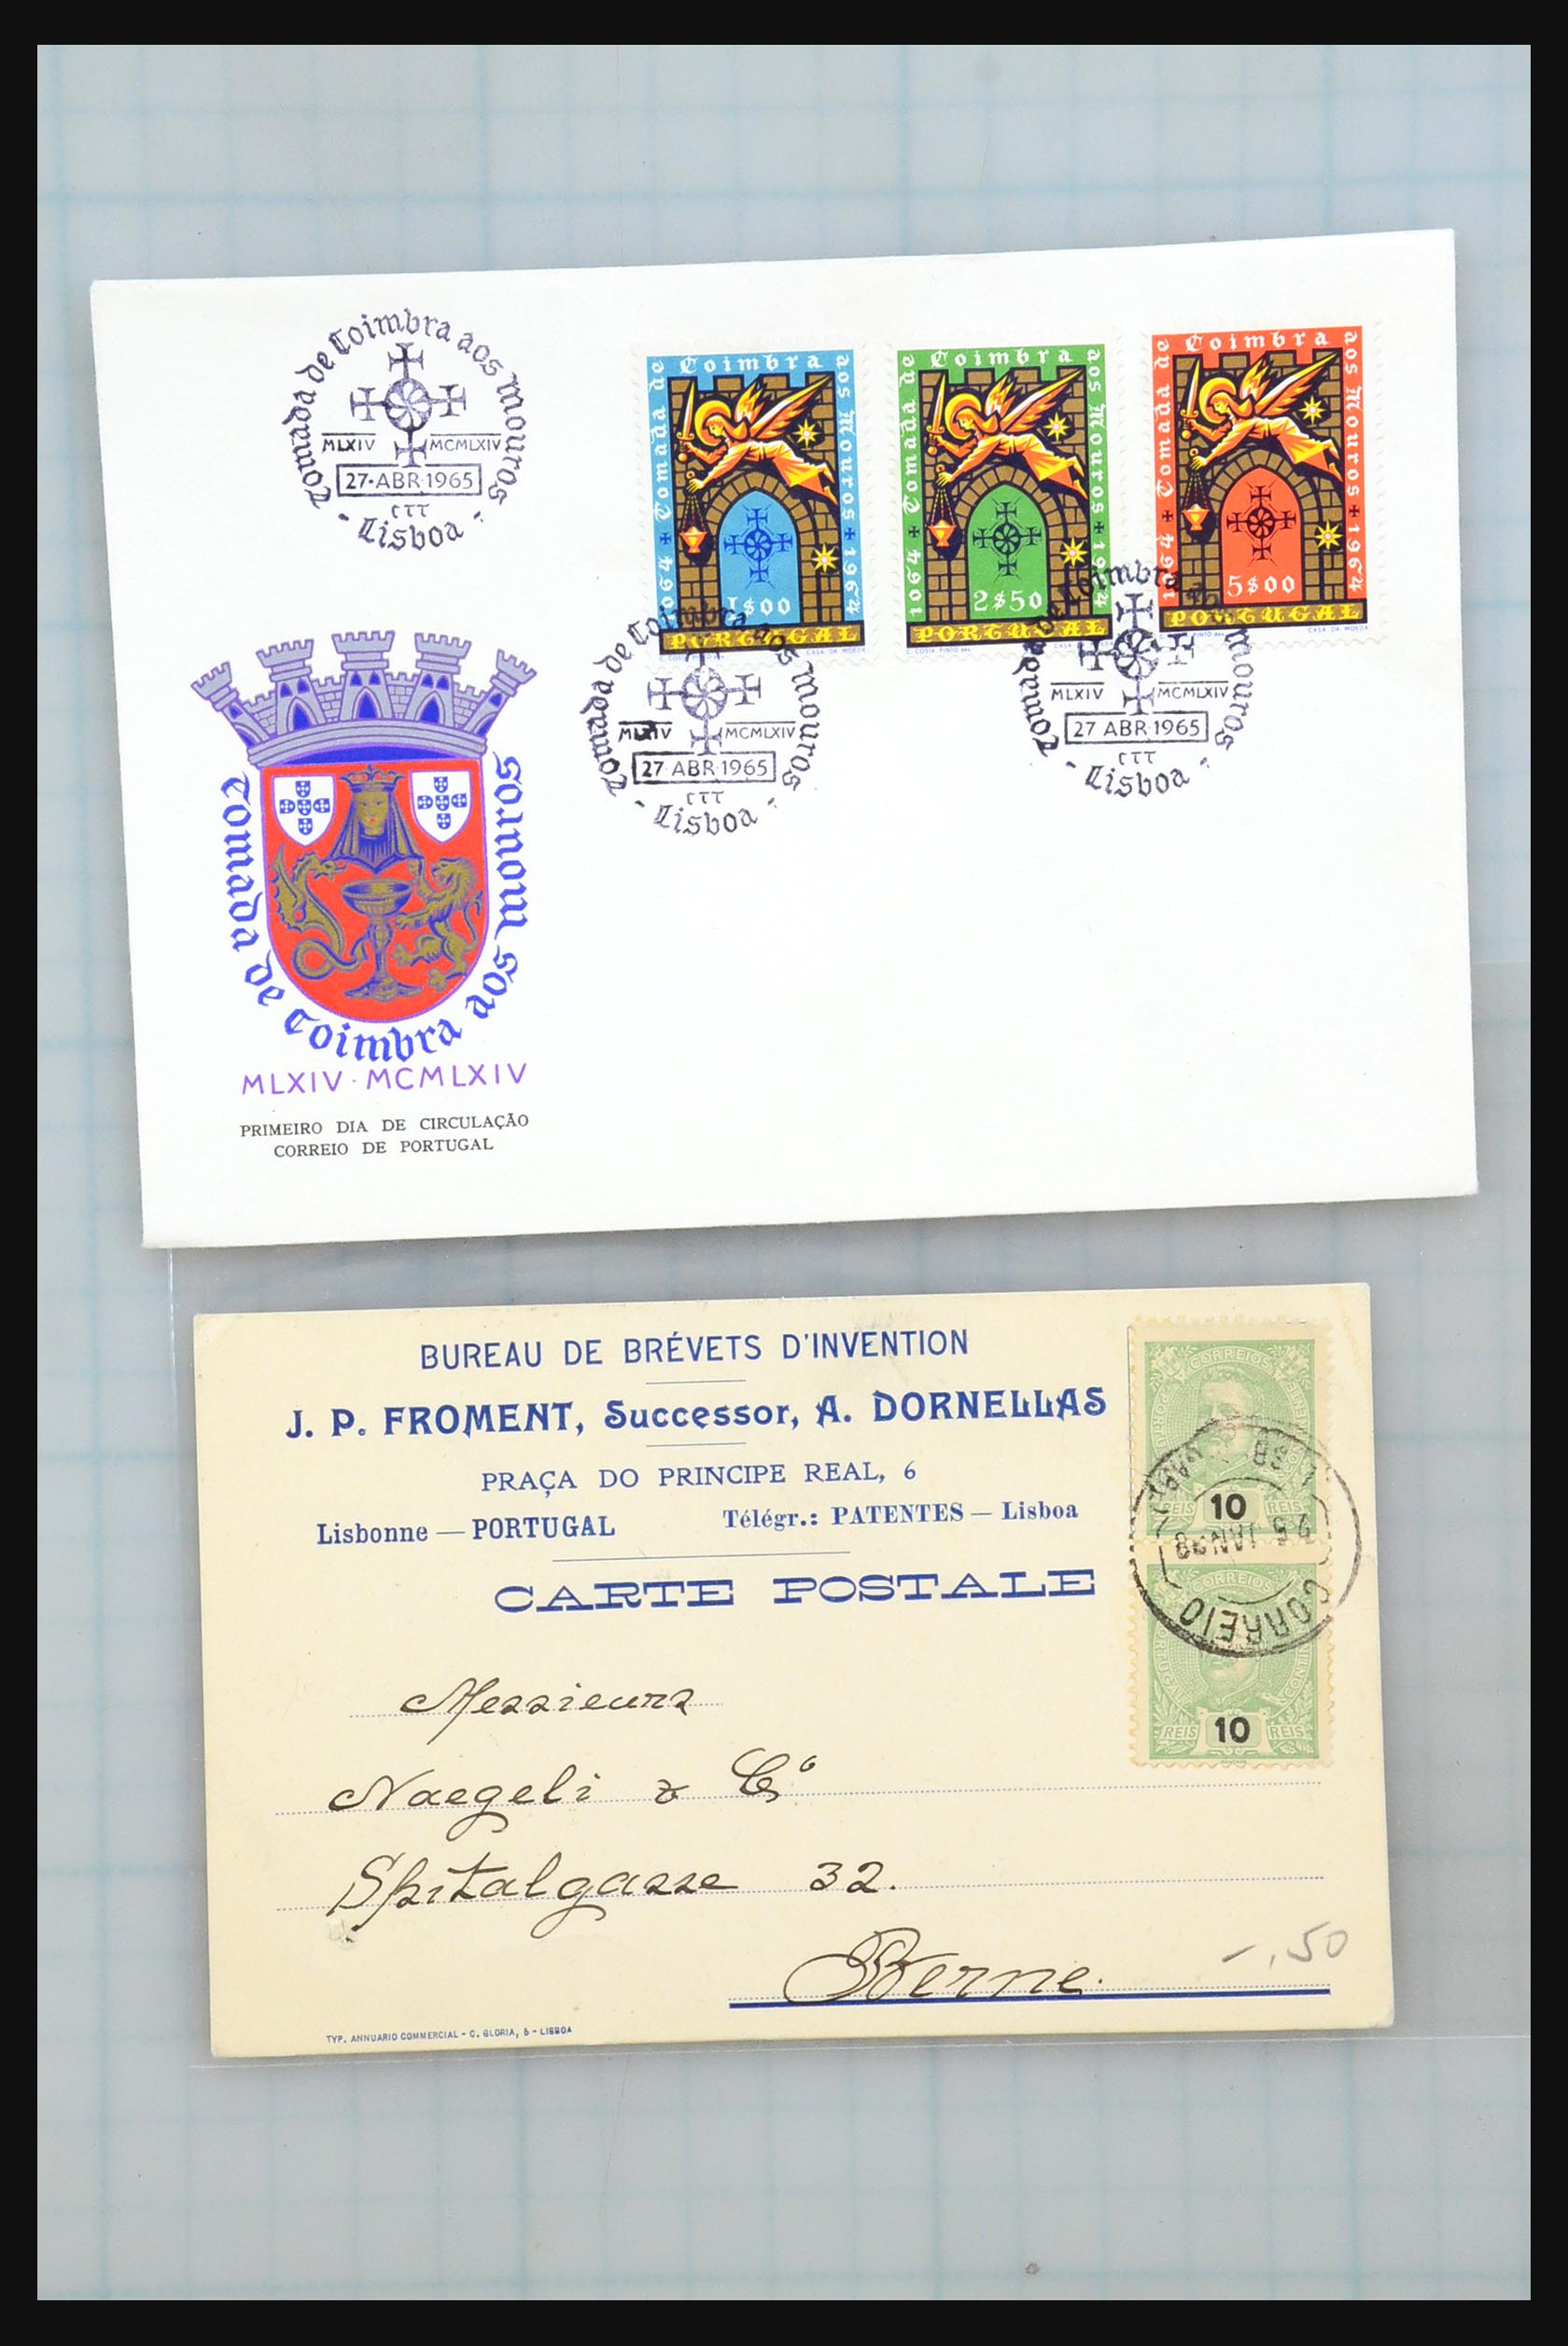 Tomada de Coimbra aos mouros
MLXIV MCMLXIV
27·ABR·1965
CTT
- Lisboa -
1064 + Tomada de Coimbra aos Mouros + 1964
1$00
PORTUGAL
C. COSTA PINTO CASA DA MOEDA
1064 + Tomada de Coimbra aos Mouros + 1964
2$50
PORTUGAL
C. COSTA PINTO CASA DA MOEDA
1064 + Tomada de Coimbra aos Mouros + 1964
5$00
PORTUGAL
PINTO CASA DA MOEDA
Tomada de Coimbra aos mouros
MLXIV MCMLXIV
27 ABR·1965
CTT
- Lisboa -
Tomada de Coimbra aos mouros
MLXIV MCMLXIV
27 ABR·1965
CTT
- Lisboa -
Tomada de Coimbra aos mouros
MLXIV · MCMLXIV
PRIMEIRO DIA DE CIRCULAÇÃO
CORREIO DE PORTUGAL
BUREAU DE BRÉVETS D'INVENTION
J. P. FROMENT, Successor, A. DORNELLAS
PRAÇA DO PRINCIPE REAL, 6
Lisbonne — PORTUGAL Télégr.: PATENTES — Lisboa
CARTE POSTALE
CORREIOS
REIS 10 REIS
25 JAN 98
CORREIO
CORREIOS
PORTUGAL CONTINENTE
REIS 10 REIS
Messieurs
Naegeli & Cº
Spitalgasse 32.
Berne.
-.50
TYP. ANNUARIO COMMERCIAL - C. GLORIA, 5 - LISBOA